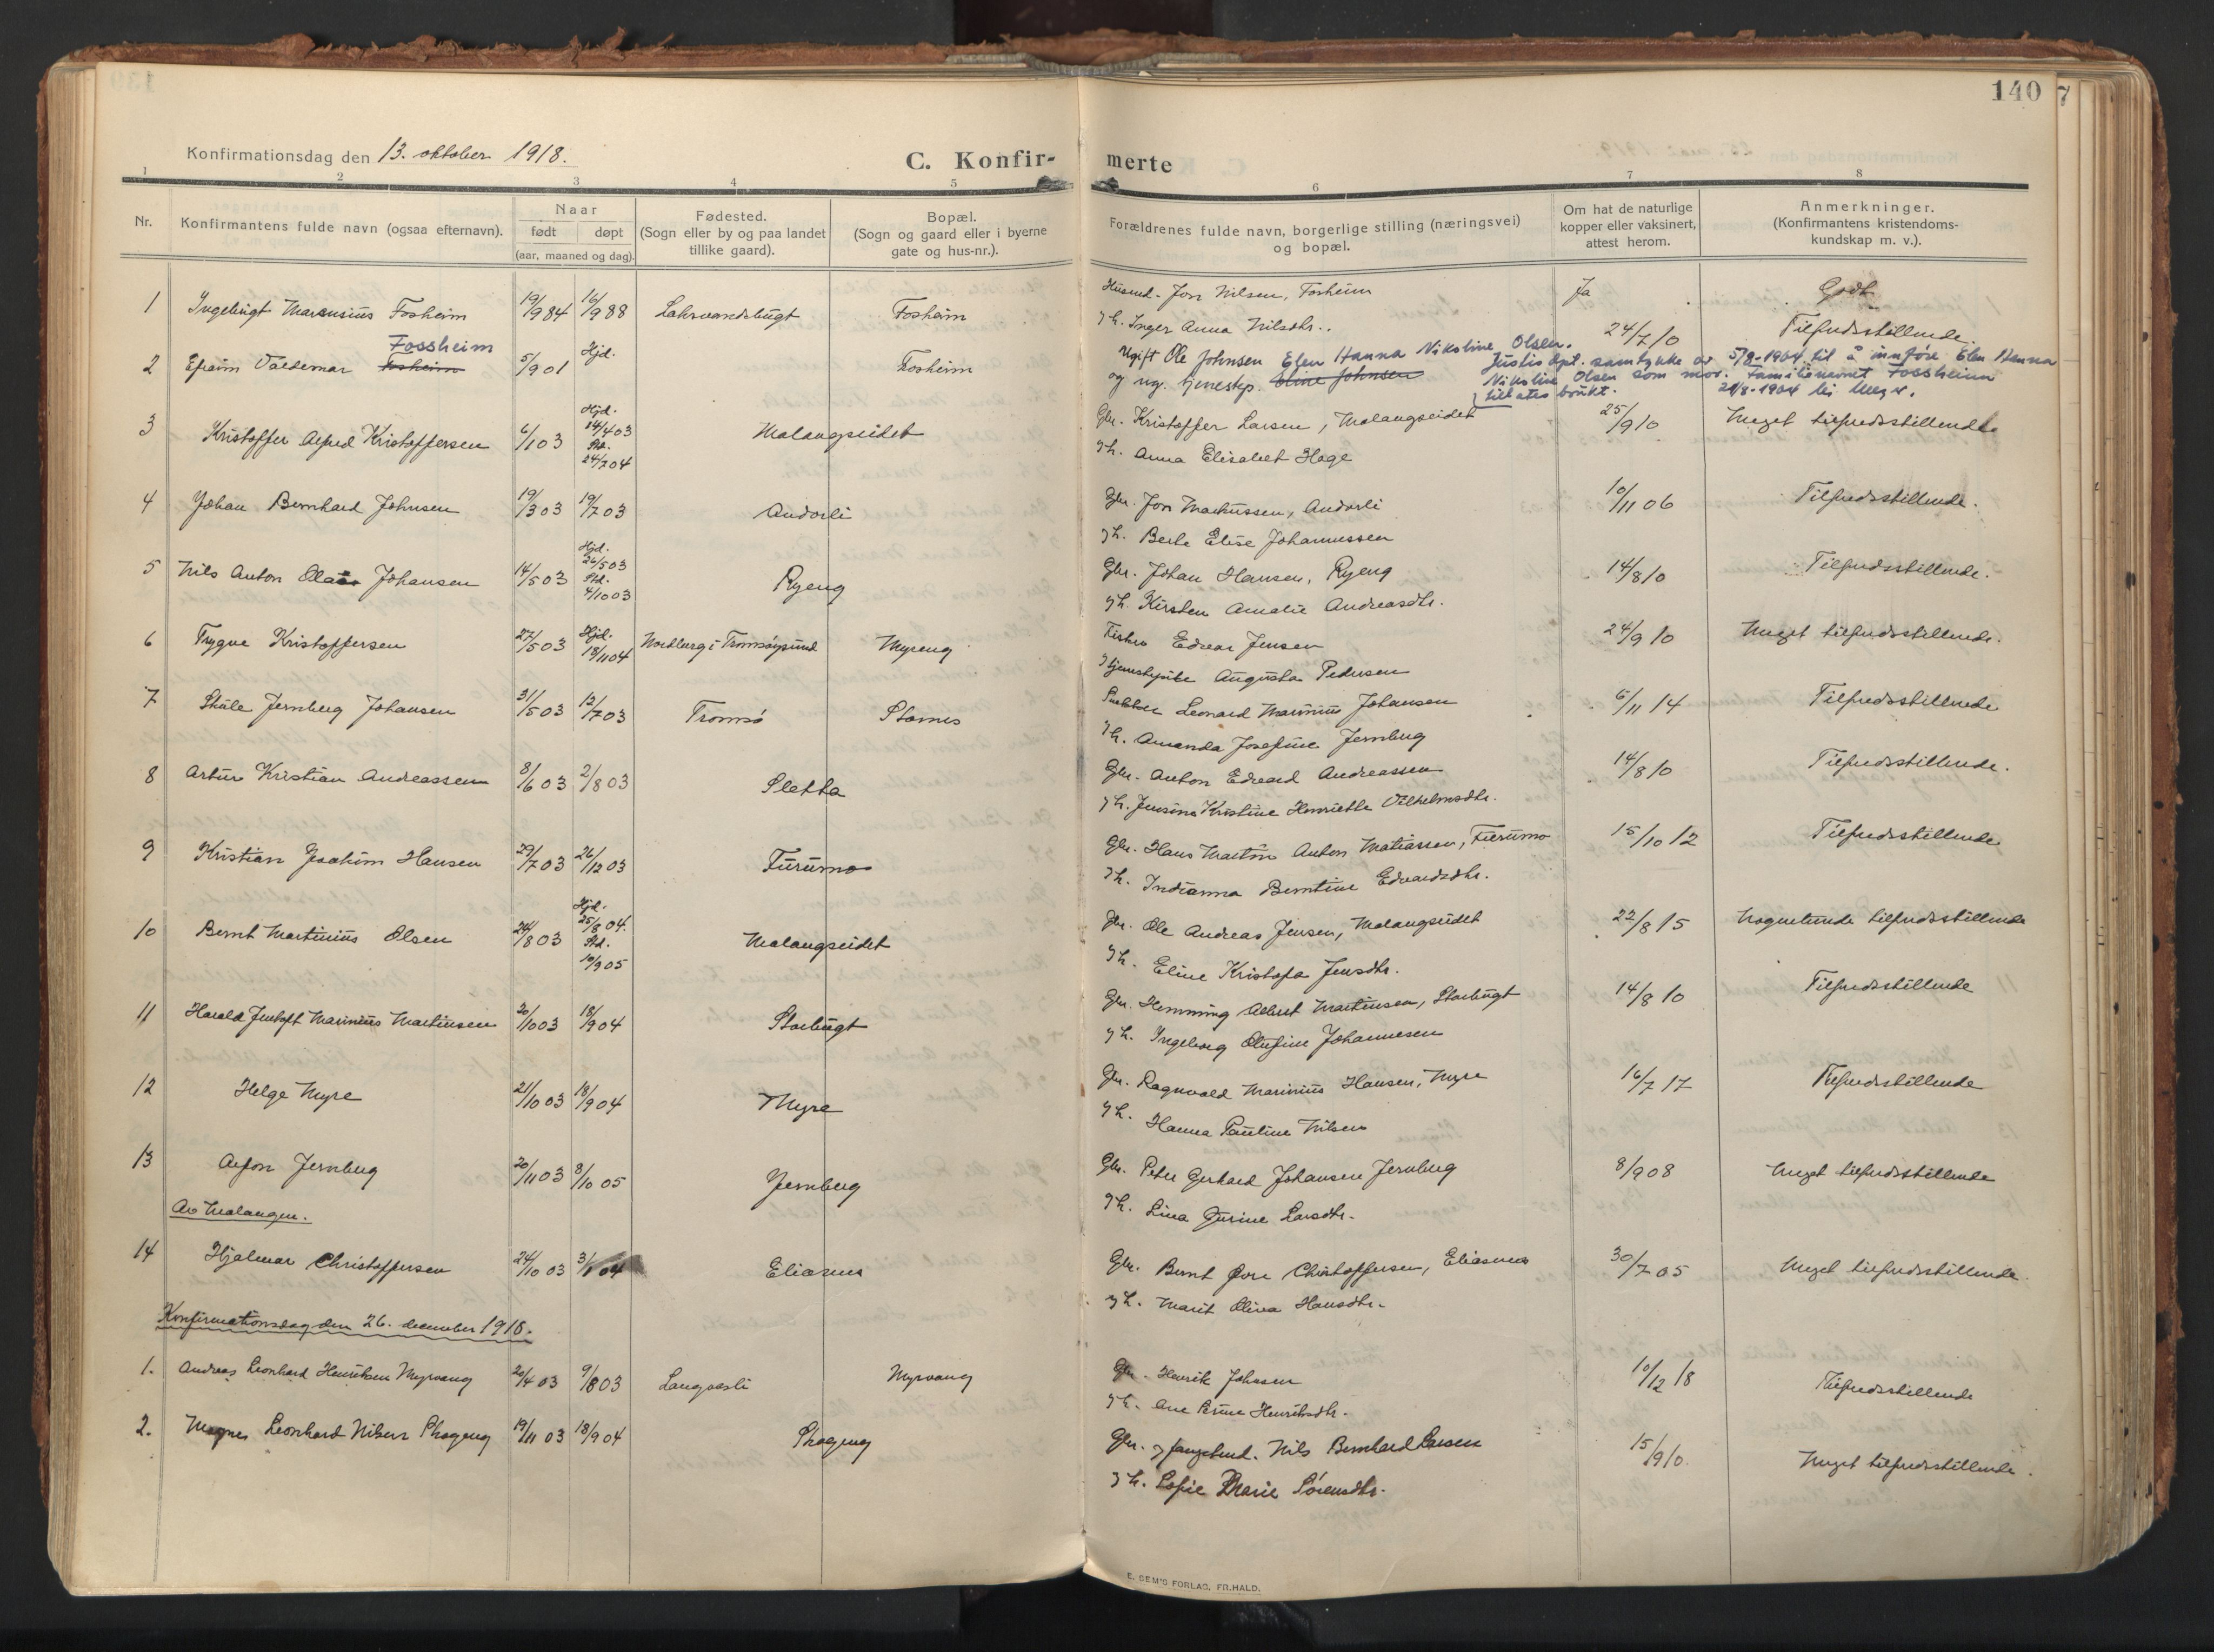 140
7
Konfirmationsdag den 13. oktober 1918.
C. Konfir-
merte
1 2 3 4 5 6 7 8
Nr.
Konfirmantens fulde navn (ogsaa efternavn).
Naar
født døpt
(aar, maaned og dag).
Fødested.
(Sogn eller by og paa landet
tillike gaard).
Bopæl.
(Sogn og gaard eller i byerne
gate og hus-nr.).
Forældrenes fulde navn, borgerlige stilling (næringsvei)
og bopæl.
Om hat de naturlige
kopper eller vaksinert,
attest herom.
Anmerkninger.
(Konfirmantens kristendoms-
kundskap m. v.).
1 Ingebrigt Marensius Fosheim 19/9 84 16/9 88 Fosheim Jon Nilsen, Fosheim Ja Godt
Inger Anna Nilsdtr.
Fossheim
2 Efraim Valdemar Fosheim 5/9 01 Hjd. Fosheim 24/7 10 Tilfredsstillende.
Ugift Ole Johnsen Elen Hanna Nikoline Olsen.
og ug. tjenestep. Eline Johnsen
Justis dpt. samtykke av 5/8-1964 til å innføre Elen Hanna
Nikoline Olsen som mor. Familienavnet Fossheim
tillates brukt.
3 Kristoffer Alfred Kristoffersen 6/1 03 Hjd. 14/4 03 Std. 24/7 04 Malangseidet Gbr. Kristoffer Larsen, Malangseidet 25/9 10 Meget tilfredsstillende
Anna Elisabet Hage
4 Johan Bernhard Johnsen 19/3 03 19/7 03 Andorli Gbr. Jon Markussen, Andorli 10/11 06 Tilfredsstillende.
Berte Elise Johannessen
5 Nils Anton Olaus Johansen 14/5 03 Hjd. 26/5 03 Std. 4/10 03 Ryeng Gbr. Johan Hansen, Ryeng 14/8 10 Tilfredsstillende.
Kirsten Amalie Andreasdtr.
6 Trygve Kristoffersen 27/5 03 Hjd. 18/11 04 Nordberg i Tromsøysund Myreng Fisker Edvar Jensen 24/9 10 Meget tilfredsstillende.
Augusta Pedersen
7 Skule Jernberg Johansen 31/5 03 12/7 03 Tromsø Leonard Marinius Johansen 6/11 14 Tilfredsstillende
Amanda Josefine Jernberg
8 Artur Kristian Andreassen 8/6 03 2/8 03 Sletta Gbr. Anton Edvard Andreassen 14/8 10 Tilfredsstillende.
Jensine Kristine Henriette Vilhelmsdtr.
9 Kristian Joakim Hansen 29/7 03 26/12 03 Furumo Gbr. Hans Martin Anton Matiassen, Furumo 15/10 12 Tilfredsstillende
Indianna Berntine Edvardsdtr.
10 Bernt Martinius Olsen 24/8 03 Hjd. 25/8 04. Std. 10/9 05 Malangseidet Gbr. Ole Andreas Jensen, Malangseidet 22/8 15 Nogenlunde tilfredsstillende
Eline Kristofa Jensdtr.
11 Harald Jentoft Marinius Martinsen 20/10 03 18/9 04 Storbugt Gbr. Hemming Albert Martinsen, Storbugt 14/8 10 Tilfredsstillende
Ingeborg Olufine Johannesen
12 Helge Myre 21/10 03 18/9 04 Myre Gbr. Ragnvald Marinius Hansen, Myre 16/7 17 Tilfredsstillende
Hanna Pauline Nilsen
13 Jernberg 20/11 03 8/10 05 Jernberg Gbr. Peter Gerhard Johansen Jernberg 8/9 08 Meget tilfredsstillende
Lina Gurine Larsdtr.
Av Malangen.
14 Hjalmar Christoffersen 24/10 03 3/1 04 Eliasnes Gbr. Bernt Christoffersen, Eliasnes 30/7 05 Meget tilfredsstillende.
Marit Oliva Hansdtr.
Konfirmationsdag den 26. december 1918.
1. Andreas Leonhard Henriksen Myrvang 20/4 03 9/8 03 Langvasli Myrvang Gbr. Henrik Johnsen 10/12 18 Tilfredsstillende
Henriksdtr.
2. Magnes Leonhard Nilsen Skogeng 19/11 03 18/9 04 Skogeng Gbr. Nils Bernhard Larsen 15/9 10. Meget tilfredsstillende.
Sofie Marie Sørensdtr.
E. SEM'S FORLAG, FR.HALD.